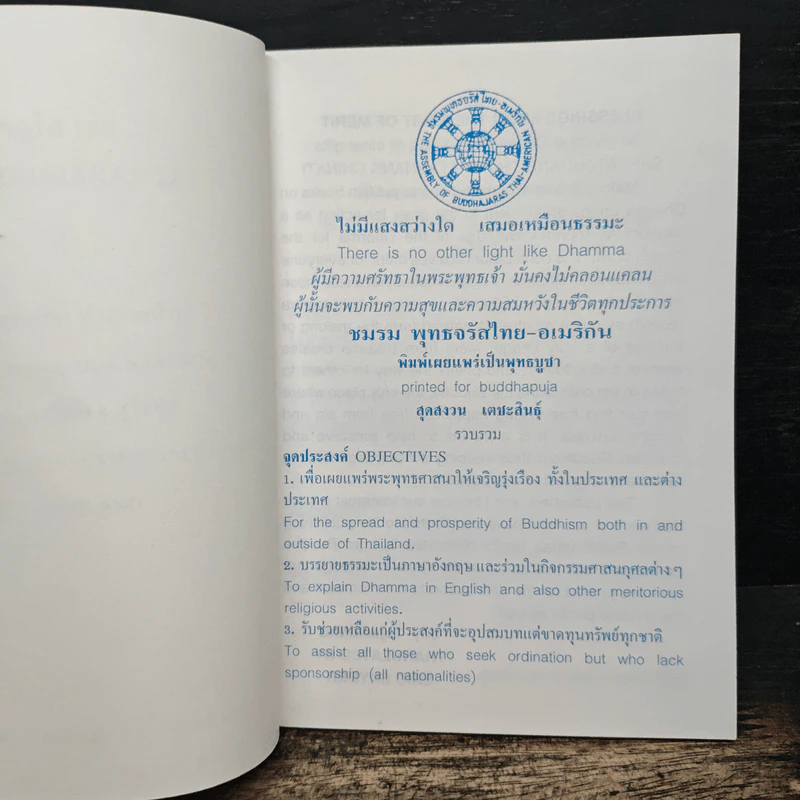 ชุมรมพุทธจรัสไทย-อเมริกัน
THE ASSEMBLY OF BUDDHAJARAS THAI-AMERICAN
ไม่มีแสงสว่างใด เสมอเหมือนธรรมะ
There is no other light like Dhamma
ผู้มีความศรัทธาในพระพุทธเจ้า มั่นคงไม่คลอนแคลน
ผู้นั้นจะพบกับความสุขและความสมหวังในชีวิตทุกประการ
ชมรม พุทธจรัสไทย-อเมริกัน
พิมพ์เผยแพร่เป็นพุทธบูชา
printed for buddhapuja
สุดสงวน เตชะสินธุ์
รวบรวม
จุดประสงค์ OBJECTIVES
1. เพื่อเผยแพร่พระพุทธศาสนาให้เจริญรุ่งเรือง ทั้งในประเทศ และต่าง
ประเทศ
For the spread and prosperity of Buddhism both in and
outside of Thailand.
2. บรรยายธรรมะเป็นภาษาอังกฤษ และร่วมในกิจกรรมศาสนกุศลต่าง ๆ
To explain Dhamma in English and also other meritorious
religious activities.
3. รับช่วยเหลือแก่ผู้ประสงค์ที่จะอุปสมบทแต่ขาดทุนทรัพย์ทุกชาติ
To assist all those who seek ordination but who lack
sponsorship (all nationalities)